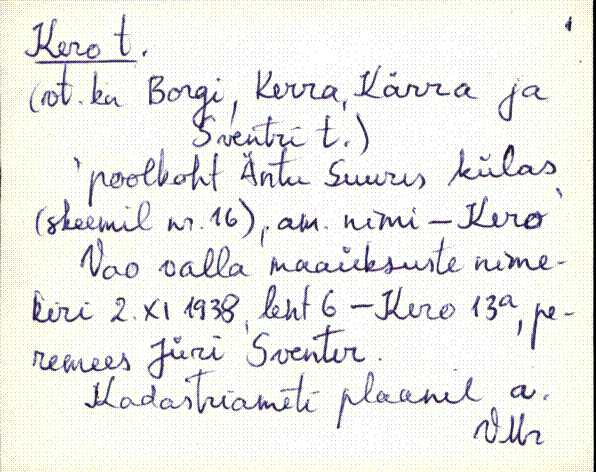 1
Kero t.
(vt. ka Borgi, Kerra, Kärra ja
Sventri t.)
'poolkoht Äntu Suures külas
(skeemil nr. 16), am. nimi – Kero'
Vao valla maaüksuste nime-
kiri 2. XI 1938, leht 6 – Kero 13ª, pe-
remees Jüri Sventer.
Kadastriameti plaanil a.
VMr